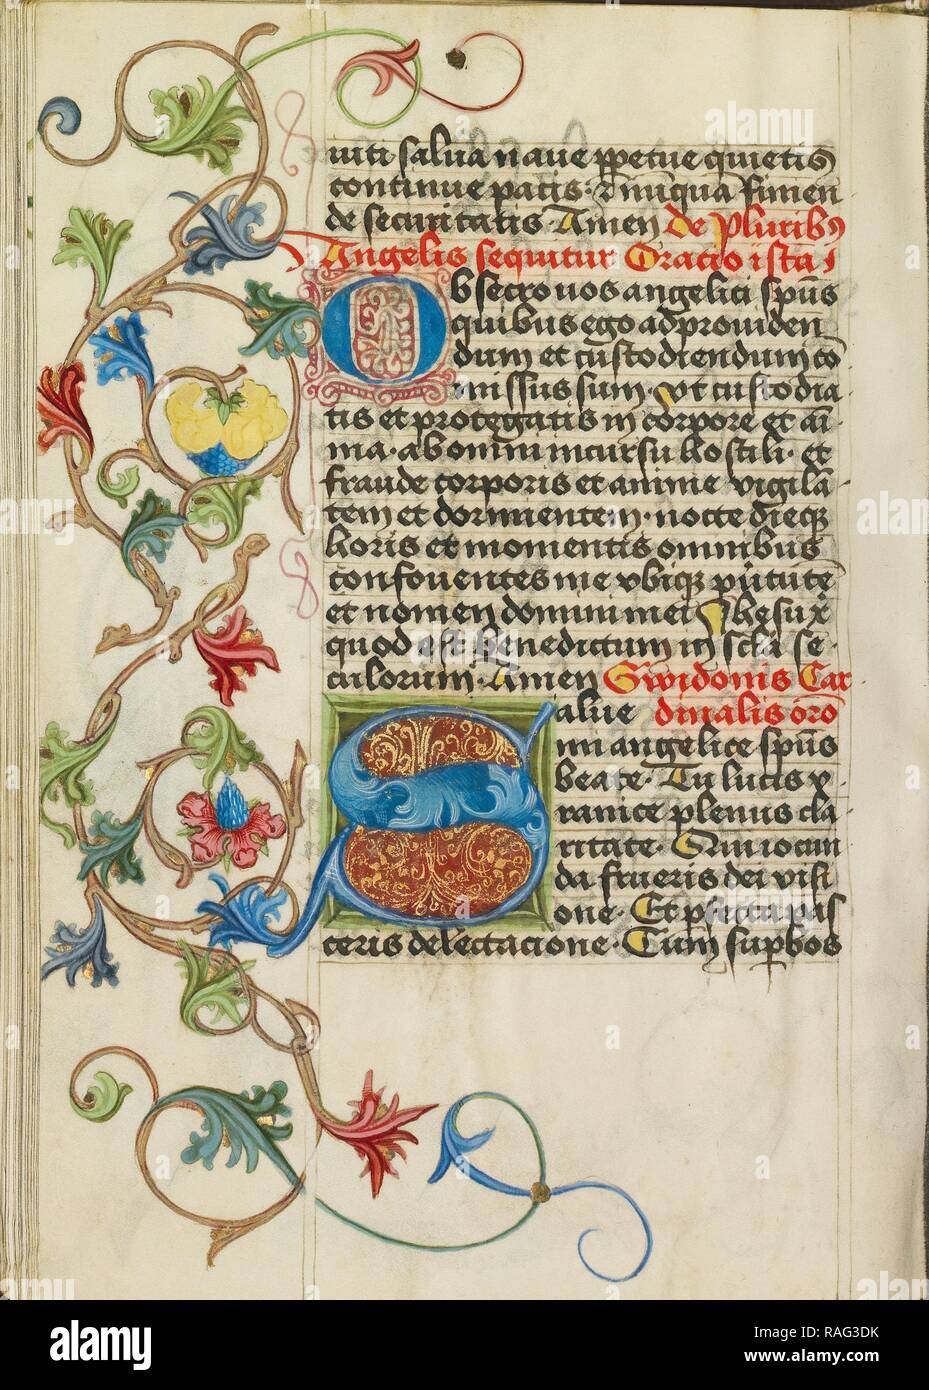 uiti salua naue ppetue quietis
continue pacis · & nuqua finien
de securitatis Amen de pluribꝫ
Angelis sequitur Oracio ista
Obsecro uos angelici spūs
quibus ego ad prouiden
dum et custodiendum cō
missus sum · vt custodia
tis et protegatis in corpore et ai
ma · ab omni incursu hostili · et
fraude corporis et anime vigilā
tem et dormientem · nocte dieqꝫ
horis et momentis omnibus
confouentes me vbiqꝫ p
et nomen domini mei Ihesu x
quod est benedictum in scla se
culorum · Amen Gwidonis Car
Salue dinalis orō
mi angelice spūs
beate · Tu lucis x
ranice plenus cla
ritate · Qui iocun
da frueris dei visi
one · Et pfecta pas
ceris delectacione · Cum supbos
alamy
Image ID: RAG3DK
www.alamy.com